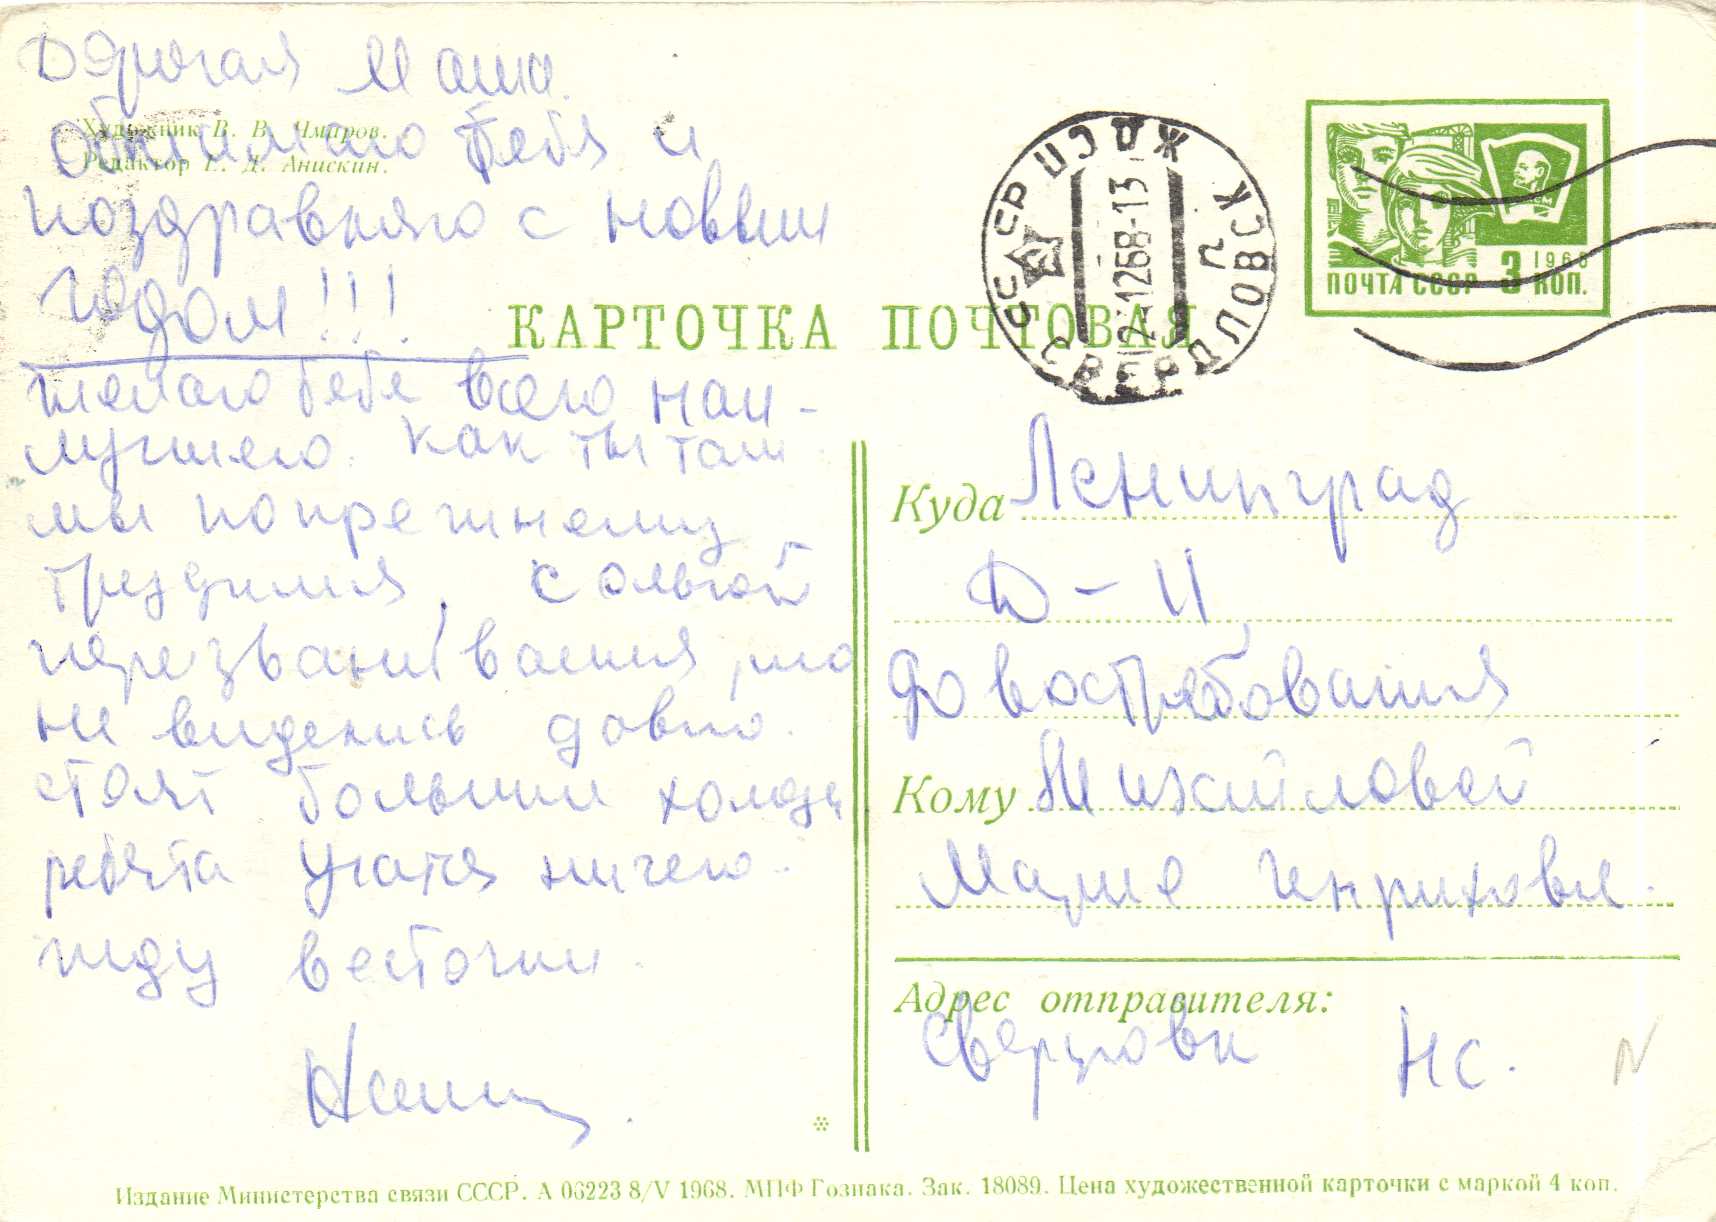 Дорогая Маша
обнимаю тебя и
поздравляю с новым
годом!!!
желаю тебе всего наи-
лучшего. Как ты там
мы по прежнему
трудимся, с Ольгой
перезваниваемся, но
не виделись давно.
стоят большие холода
ребята учатся ничего.
жду весточки.
Художник В. В. Чмаров.
Редактор Г. Д. Анискин.
КАРТОЧКА ПОЧТОВАЯ
СССР
СВЕРДЛОВСК
2-1268-13
ПОЧТА СССР 3 КОП.
Куда Ленинград
Д-11
До востребования
Кому Михайловой
Марие Генриховне.
Адрес отправителя:
НС.
Издание Министерства связи СССР. А 06223 8/V 1968. МПФ Гознака. Зак. 18089. Цена художественной карточки с маркой 4 коп.